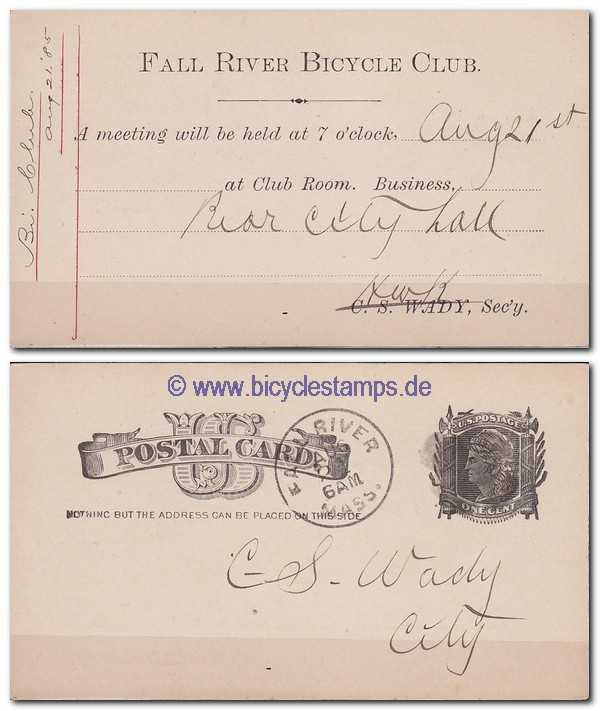 Bi. Club.
Aug 21 '85
FALL RIVER BICYCLE CLUB.
A meeting will be held at 7 o'clock, Aug 21st
at Club Room. Business,
Rear City Hall
C. S. WADY, Sec'y.
© www.bicyclestamps.de
US
POSTAL CARD
NOTHING BUT THE ADDRESS CAN BE PLACED ON THIS SIDE.
FALL RIVER
6AM
MASS.
U.S. POSTAGE
ONE CENT
C. S. Wady
City